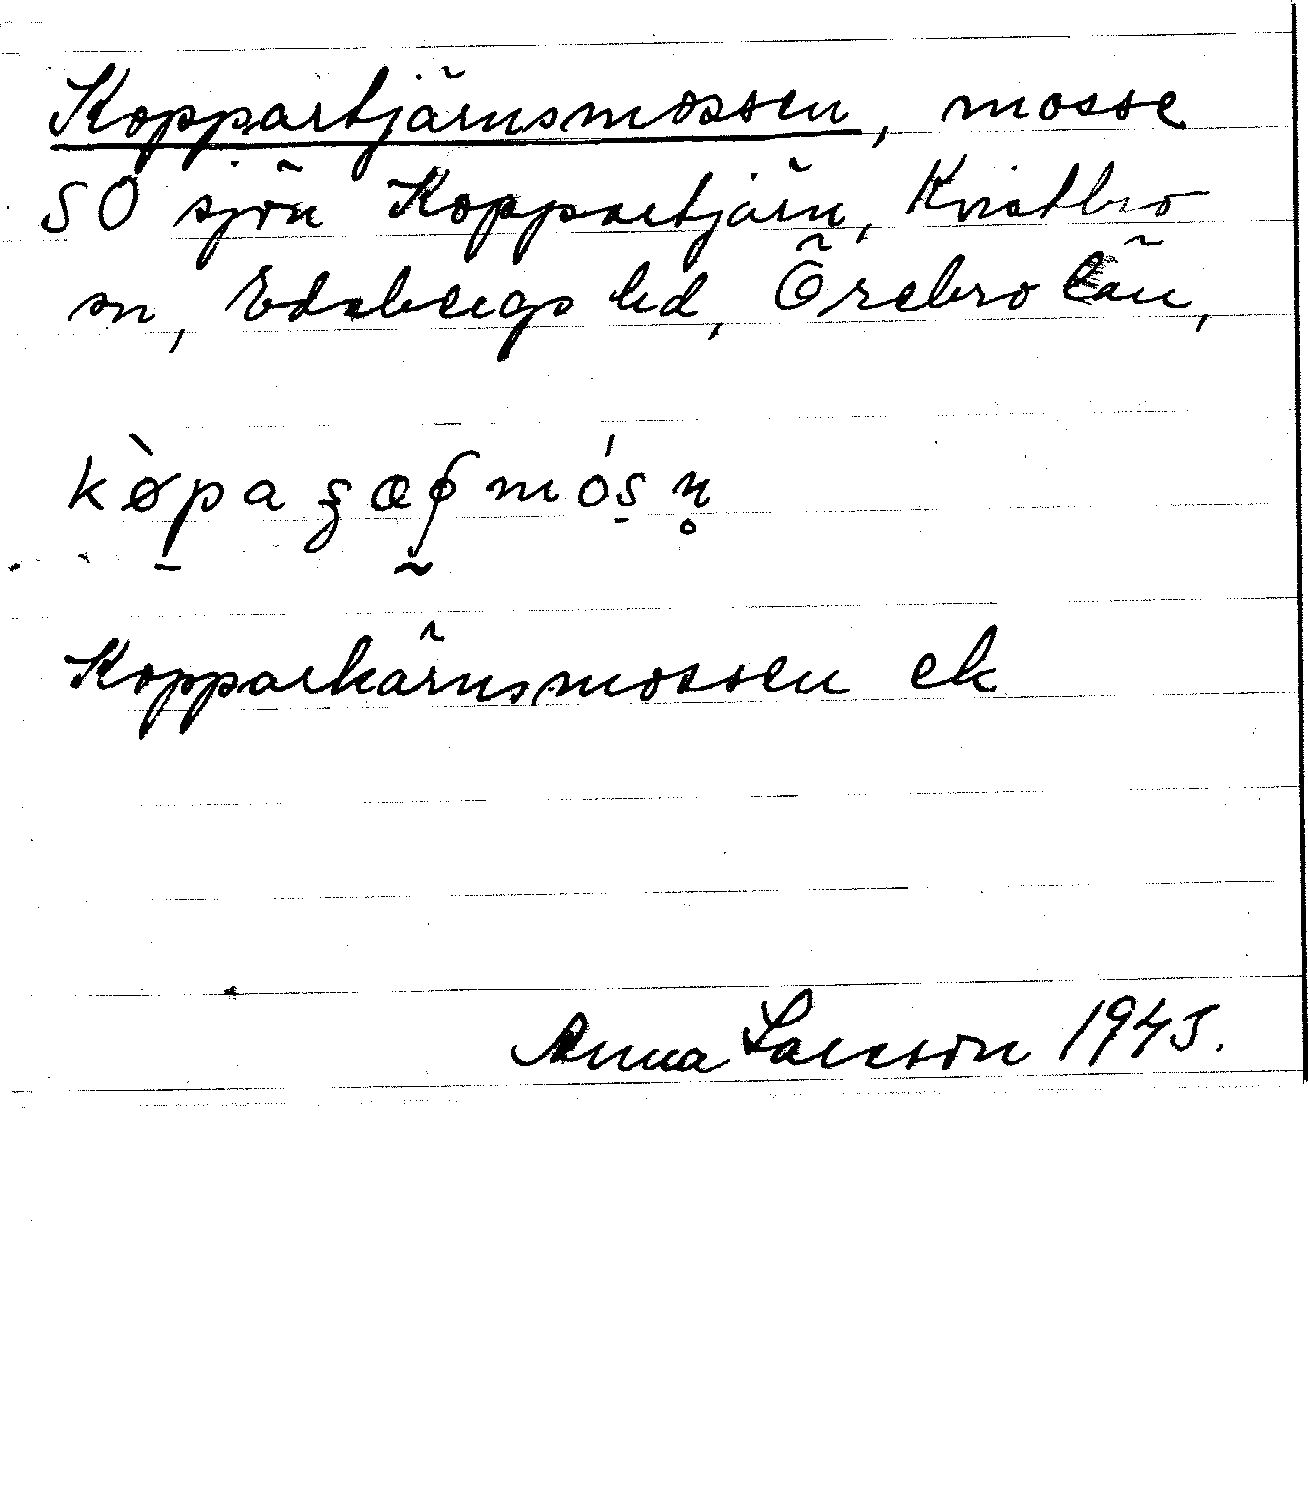 Koppartjärnsmossen, mosse
SO sjön Koppartjärn, Kvistbro
sn, Edsbergs hd, Örebro län,
Kopparkärnsmossen ek
Anna Larsson 1945.